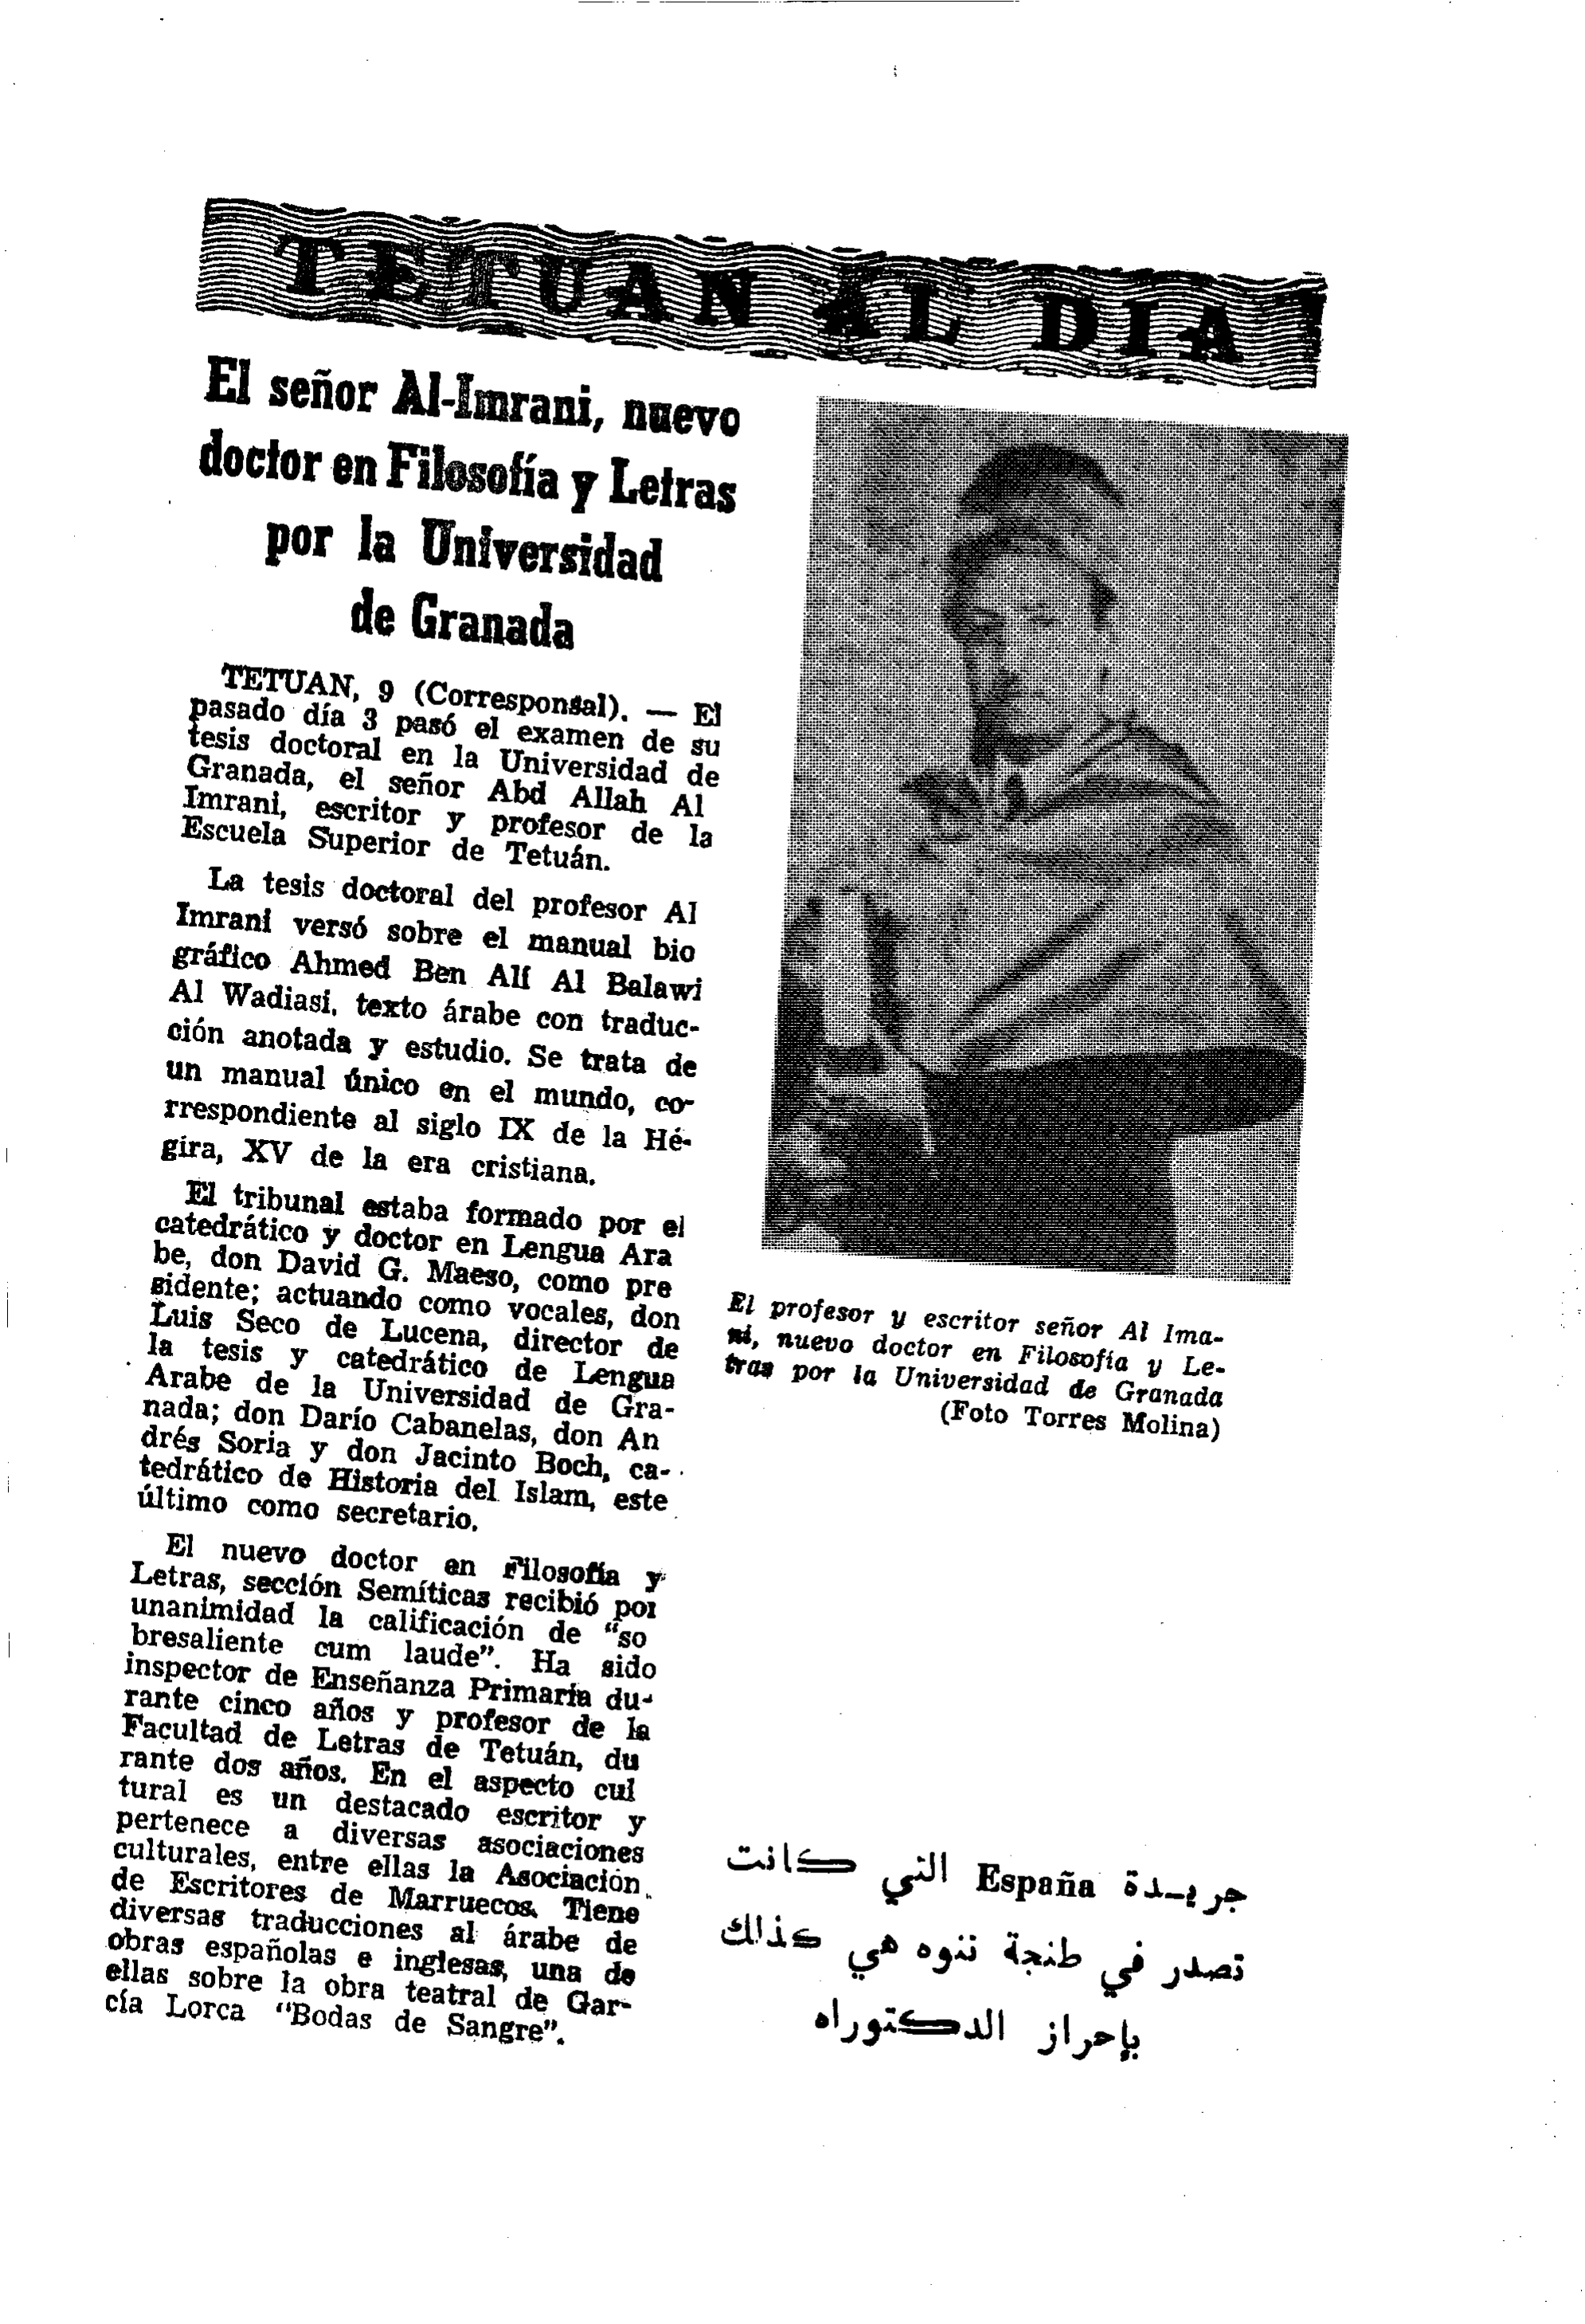 TETUAN AL DIA
El señor Al-Imrani, nuevo
doctor en Filosofía y Letras
por la Universidad
de Granada
TETUAN, 9 (Corresponsal). — El
pasado día 3 pasó el examen de su
tesis doctoral en la Universidad de
Granada, el señor Abd Allah Al
Imrani, escritor y profesor de la
Escuela Superior de Tetuán.
La tesis doctoral del profesor Al
Imrani versó sobre el manual bio
gráfico Ahmed Ben Alí Al Balawi
Al Wadiasi, texto árabe con traduc-
ción anotada y estudio. Se trata de
un manual único en el mundo, co-
rrespondiente al siglo IX de la Hé-
gira, XV de la era cristiana.
El tribunal estaba formado por el
catedrático y doctor en Lengua Ara
be, don David G. Maeso, como pre
sidente; actuando como vocales, don
Luis Seco de Lucena, director de
la tesis y catedrático de Lengua
Arabe de la Universidad de Gra-
nada; don Darío Cabanelas, don An
drés Soria y don Jacinto Boch, ca-
tedrático de Historia del Islam, este
último como secretario.
El nuevo doctor en Filosofía y
Letras, sección Semíticas recibió por
unanimidad la calificación de "so
bresaliente cum laude". Ha sido
inspector de Enseñanza Primaria du-
rante cinco años y profesor de la
Facultad de Letras de Tetuán, du
rante dos años. En el aspecto cul
tural es un destacado escritor y
pertenece a diversas asociaciones
culturales, entre ellas la Asociación
de Escritores de Marruecos. Tiene
diversas traducciones al árabe de
obras españolas e inglesas, una de
ellas sobre la obra teatral de Gar-
cía Lorca "Bodas de Sangre".
El profesor y escritor señor Al Ima-
ni, nuevo doctor en Filosofía y Le-
tras por la Universidad de Granada
(Foto Torres Molina)
جريـدة España التي كانت
تصدر في طنجة تنوه هي كذلك
بإحراز الدكتوراه